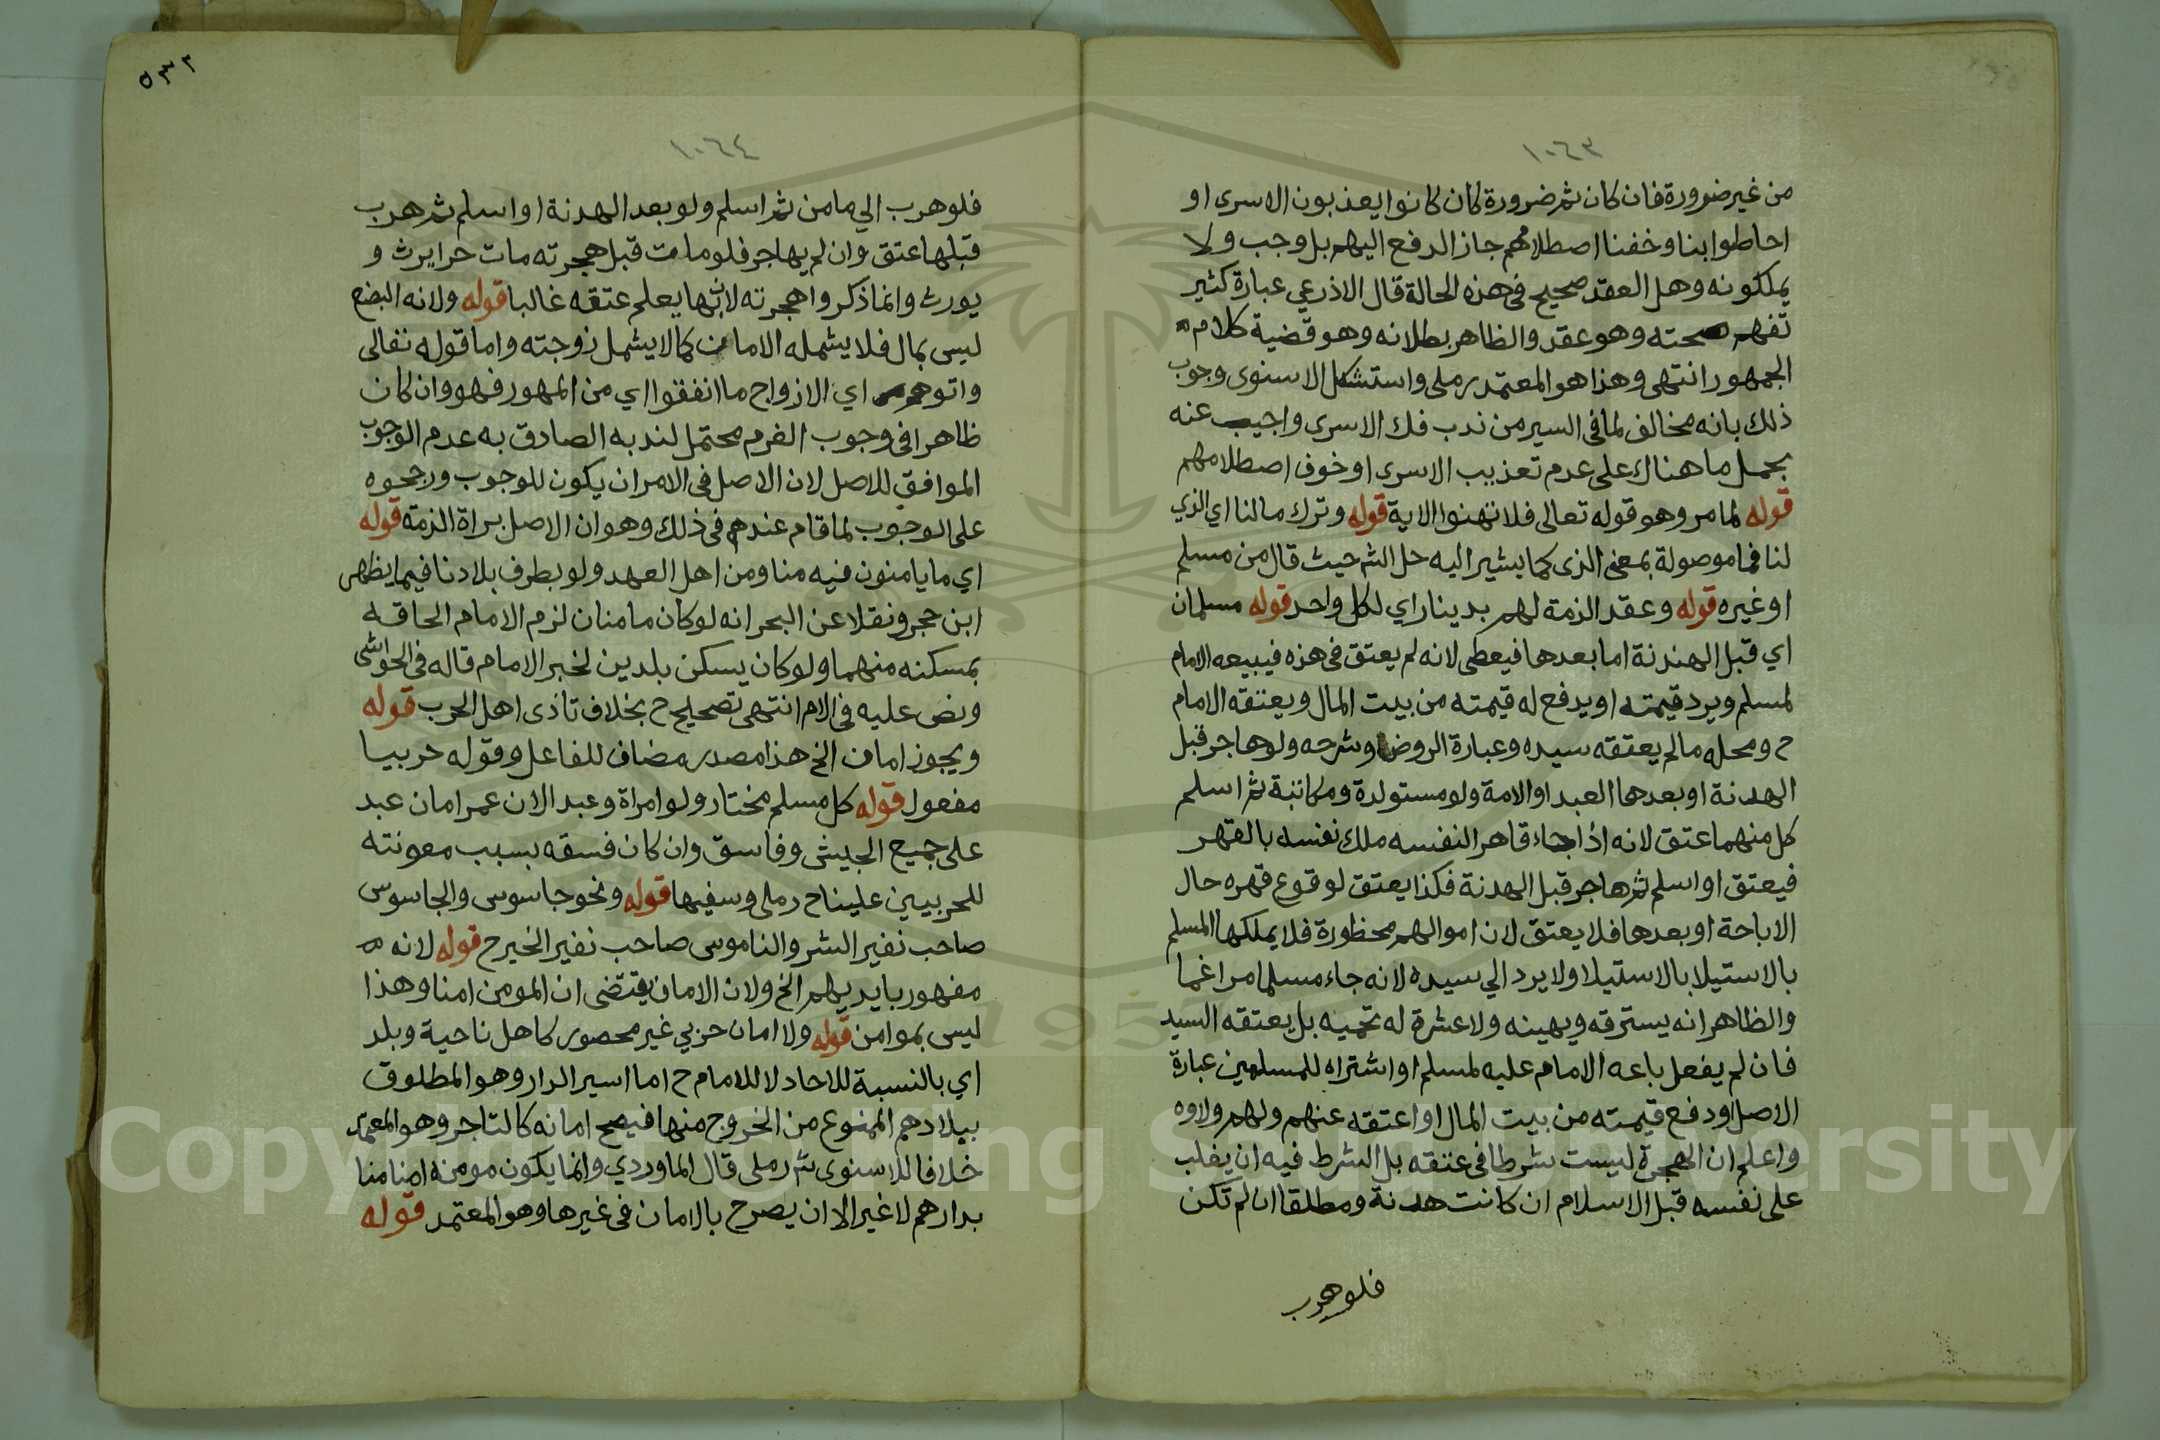 ١٠٦٣
من غير ضرورة فان كان ثم ضرورة كان كانوا يعذبون الاسرى او
احاطوا بنا وخفنا اصطلامهم جاز الدفع اليهم بل وجب ولا
يملكونه وهل العقد صحيح في هذه الحالة قال الاذرعي عبارة كثير
تفهم صحته وهو عقد والظاهر بطلانه وهو قضية كلام
الجمهور انتهى وهذا هو المعتمد رملى واستشكل الاسنوى وجوب
ذلك بانه مخالف لما في السير من ندب فك الاسرى واجيب عنه
بحمل ما هناك على عدم تعذيب الاسرى او خوف اصطلامهم
قوله لما مر وهو قوله تعالى فلا تهنوا الاية قوله وترك مالنا اي الذي
لنا فما موصولة بمعنى الذى كما يشير اليه حل الشر حيث قال من مسلم
او غيره قوله وعقد الذمة لهم بدينار اي لكل واحد قوله مسلمان
اي قبل الهدنة اما بعدها فيعطى لانه لم يعتق في هذه فيبيعه الامام
لمسلم ويرد قيمته او يدفع له قيمته من بيت المال ويعتقه الامام
ح ومحله مالم يعتقه سيده وعبارة الروض وشرحه ولو هاجر قبل
الهدنة او بعدها العبد او الامة ولو مستولدة ومكاتبة ثم اسلم
كل منهما عتق لانه اذا جاء قاهرا لنفسه ملك نفسه بالقهر
فيعتق او اسلم ثم هاجر قبل الهدنة فكذا يعتق لوقوع قهره حال
الاباحة او بعدها فلا يعتق لان اموالهم محظورة فلا يملكها المسلم
بالاستيلا بالاستيلا ولا يرد الي سيده لانه جاء مسلما مراغما
والظاهر انه يسترقه ويهينه ولا عشرة له تحميه بل يعتقه السيد
فان لم يفعل باعه الامام عليه لمسلم او اشتراه للمسلمين عبارة
الاصل ودفع قيمته من بيت المال او اعتقه عنهم ولهم ولاوه
واعلم ان الهجرة ليست شرطا في عتقه بل الشرط فيه ان يغلب
على نفسه قبل الاسلام ان كانت هدنة ومطلقا ان لم تكن
فلو هرب
٥٣٢
١٠٦٤
فلو هرب الي مامن ثم اسلم ولو بعد الهدنة او اسلم ثم هرب
قبلها عتق وان لم يهاجر فلو مات قبل هجرته مات حرا يرث و
يورث وانما ذكروا هجرته لان بها يعلم عتقه غالبا قوله ولانه البضع
ليس بمال فلا يشمله الامان كما لا يشمل زوجته واما قوله تعالى
واتوهم اي الازواج ما انفقوا اي من المهور فهو وان كان
ظاهرا في وجوب الغرم محتمل لندبه الصادق به عدم الوجوب
الموافق للاصل لان الاصل في الامر ان يكون للوجوب ورجحوه
على الوجوب لما قام عندهم في ذلك وهو ان الاصل براة الذمة قوله
اي ما يامنون فيه منا ومن اهل العهد ولو بطرف بلادنا فيما يظهر
ابن حجر ونقلا عن البحر انه لو كان مامنان لزم الامام الحاقه
بمسكنه منهما ولو كان يسكن بلدين لخير الامام قاله في الحواشي
ونص عليه في الام انتهى تصحيح ح بخلاف تاذى اهل الحرب قوله
ويجوز امان الخ هذا مصدر مضاف للفاعل وقوله حربيا
مفعول قوله كل مسلم مختار ولو امراة وعبد الان عمر امان عبد
على جميع الجيش وفاسق وان كان فسقه بسبب معونته
للحربيين علينا ح رملى وسفيها قوله ونحو جاسوس والجاسوس
صاحب نفير الشر والناموس صاحب نفير الخير ح قوله لانه
مقهور بايديهم الخ ولان الامان يقتضى ان المومن امنا وهذا
ليس بموامن قوله ولا امان حزبي غير محصور كاهل ناحية وبلد
اي بالنسبة للاحاد لا للامام ح اما اسير الدار وهو المطلوق
ببلادهم الممنوع من الخروج منها فيصح امانه كالتاجر وهو المعتمد
خلافا للاسنوى ش رملى قال الماوردي وانما يكون مومنه امنا منا
بدارهم لا غير الا ان يصرح بالامان في غيرها وهو المعتمد قوله
1957
Copyright © King Saud University